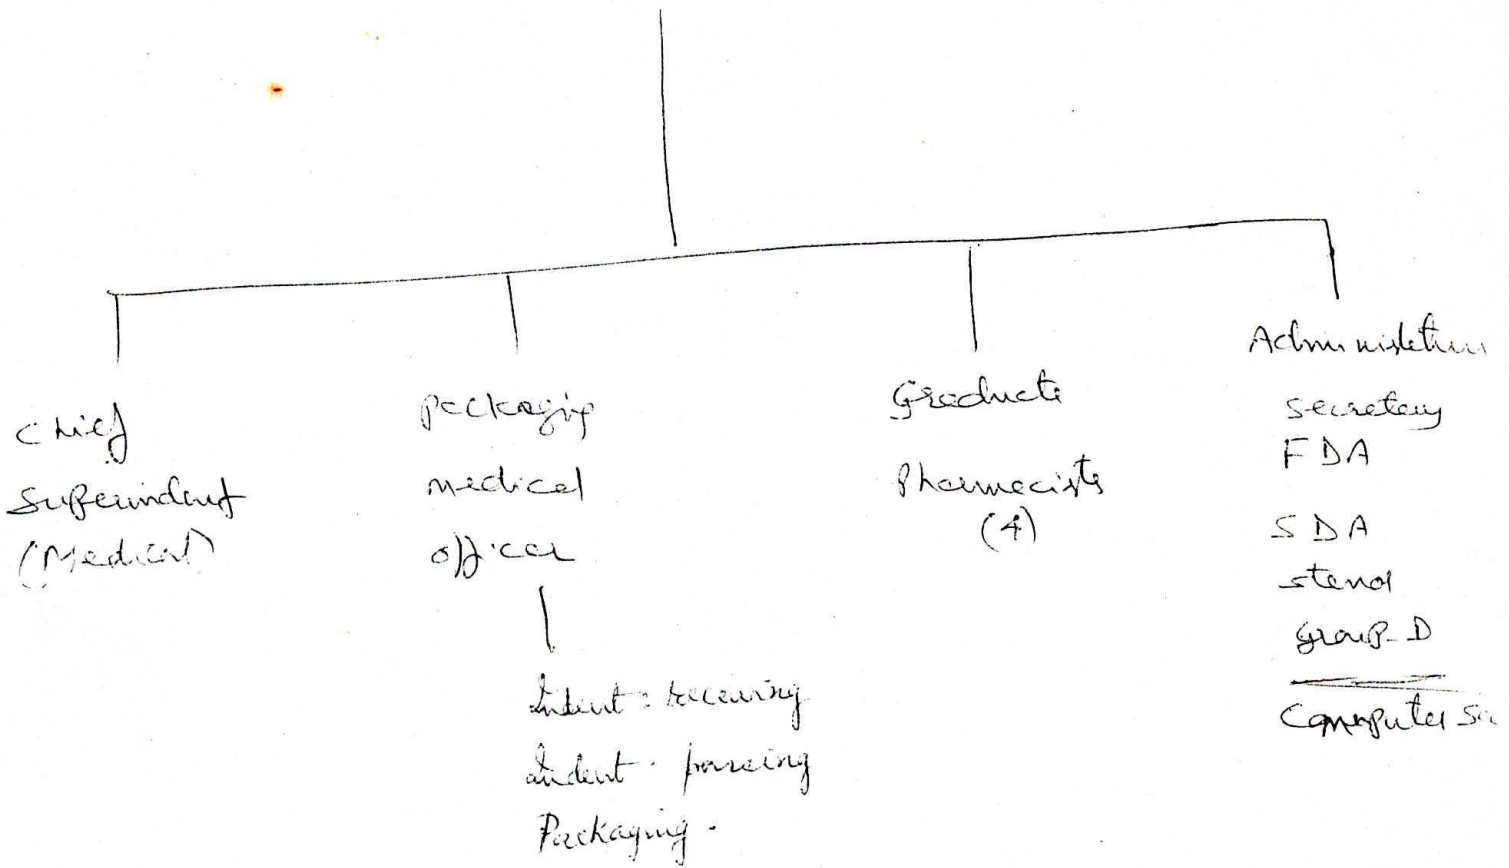 Chief
Superindent
(Medical)
Packagig
medical
officer
Indent : receiving
indent . passing
Packaging .
Graduate
Pharmacists
(4)
Administration
Secretary
FDA
SDA
Stenos
Group-D
Computer